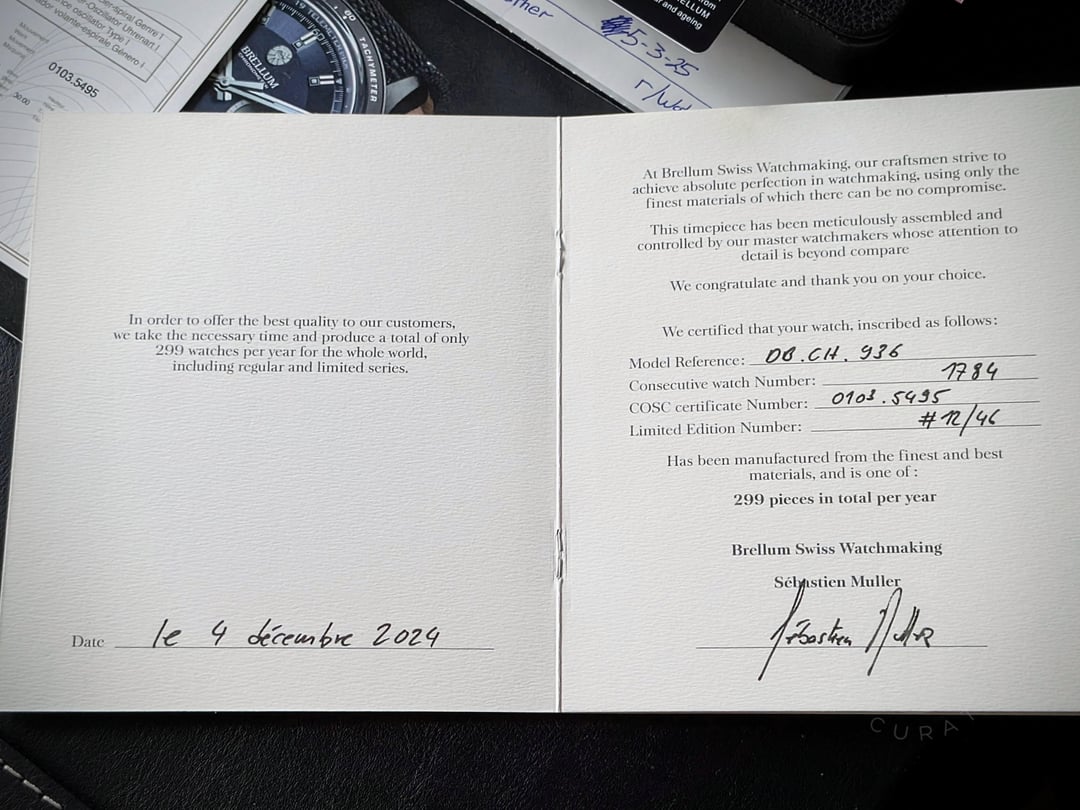 0103.5495
TELEMETER
60
TACHYMETER
BRELLUM
BRELLUM
and ageing
5-3-25
In order to offer the best quality to our customers,
we take the necessary time and produce a total of only
299 watches per year for the whole world,
including regular and limited series.
Date le 4 décembre 2024
At Brellum Swiss Watchmaking, our craftsmen strive to
achieve absolute perfection in watchmaking, using only the
finest materials of which there can be no compromise.
This timepiece has been meticulously assembled and
controlled by our master watchmakers whose attention to
detail is beyond compare
We congratulate and thank you on your choice.
We certified that your watch, inscribed as follows:
Model Reference: DB.CH. 936
Consecutive watch Number: 1784
COSC certificate Number: 0103.5495
Limited Edition Number: #12/46
Has been manufactured from the finest and best
materials, and is one of :
299 pieces in total per year
Brellum Swiss Watchmaking
Sébastien Muller
Sébastien Muller